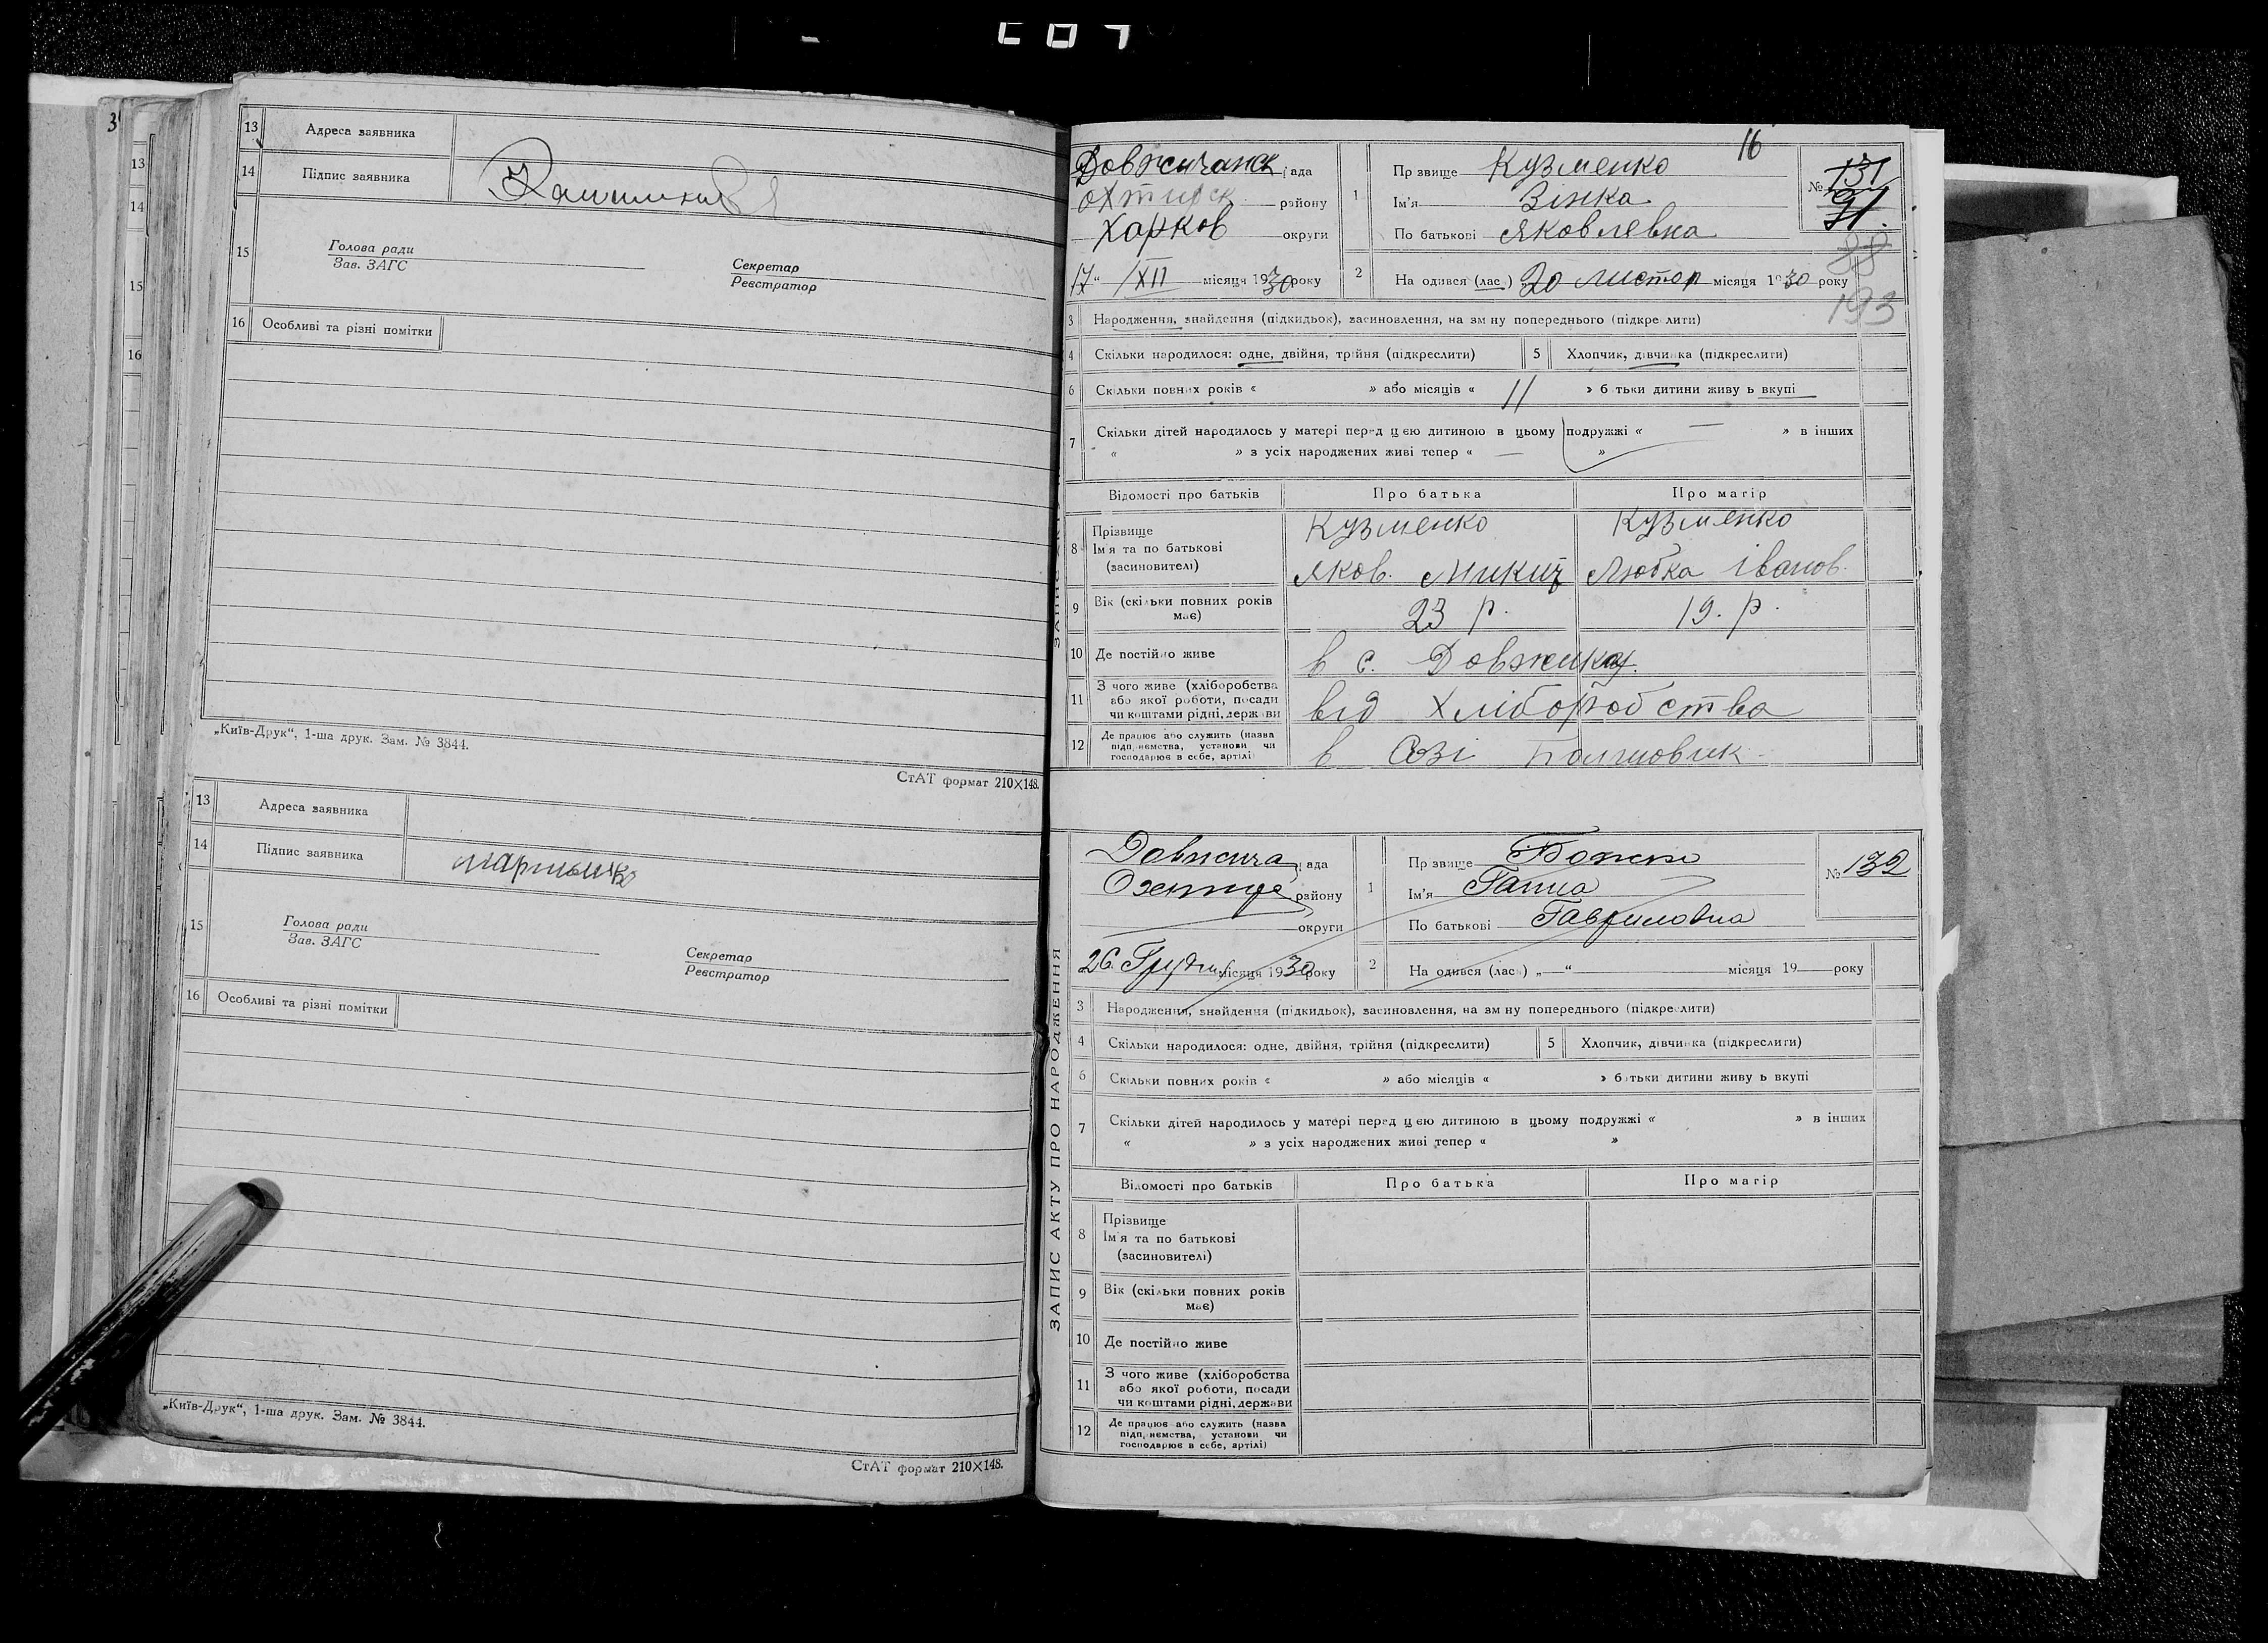 13 Адреса заявника
14 Підпис заявника
15 Голова ради
Зав. ЗАГС
Секретар
Реєстратор
16 Особливі та різні помітки
„Київ-Друк“, 1-ша друк. Зам. № 3844.
СтАТ формат 210×148.
13 Адреса заявника
14 Підпис заявника
15 Голова ради
Зав. ЗАГС
Секретар
Реєстратор
16 Особливі та різні помітки
„Київ-Друк“, 1-ша друк. Зам. № 3844.
СтАТ формат 210×148.
16
Довжичанск рада
Охтирск району
Харков округи
17 “ XII місяця 1930 року
1 Прізвище Кузменко
Ім'я Зінка
По батькові Яковлевна
№ 131
91
193
2 На одився (лас ) 20 листоп місяця 1930 року
3 Народження, знайдення (підкидьок), засиновлення, на зм ну попереднього (підкреслити)
4 Скільки народилося: одне, двійня, трійня (підкреслити) 5 Хлопчик, дівчинка (підкреслити)
6 Скільки повних років « » або місяців « // » батьки дитини живу ь вкупі
7 Скільки дітей народилось у матері перед цією дитиною в цьому подружжі « — » в інших
« » з усіх народжених живі тепер « — »
Відомості про батьків Про батька Про матір
8 Прізвище
Ім'я та по батькові
(засиновителі)
Кузменко Кузменко
Яков. Микит Любка Іванов.
9 Вік (скільки повних років має) 23 р. 19. р.
10 Де постійно живе в с. Довжику.
11 З чого живе (хліборобства
або якої роботи, посади
чи коштами рідні, держави
від Хліборобства
12 Де працює або служить (назва
підприємства, установи чи
господарює в себе, артілі)
в Созі
ЗАПИС АКТУ ПРО НАРОДЖЕННЯ
рада
району
округи
26. Грудня місяця 1930 року
1 Прізвище
Ім'я Ганна
По батькові Гавриловна
№ 132
2 На одився (лась) „—“ місяця 19 року
3 Народження, знайдення (підкидьок), засиновлення, на зм ну попереднього (підкреслити)
4 Скільки народилося: одне, двійня, трійня (підкреслити) 5 Хлопчик, дівчинка (підкреслити)
6 Скільки повних років « » або місяців « » батьки дитини живу ь вкупі
7 Скільки дітей народилось у матері перед цією дитиною в цьому подружжі « » в інших
« » з усіх народжених живі тепер « »
Відомості про батьків Про батька Про матір
8 Прізвище
Ім'я та по батькові
(засиновителі)
9 Вік (скільки повних років
має)
10 Де постійно живе
11 З чого живе (хліборобства
або якої роботи, посади
чи коштами рідні, держави
12 Де працює або служить (назва
підприємства, установи чи
господарює в себе, артілі)